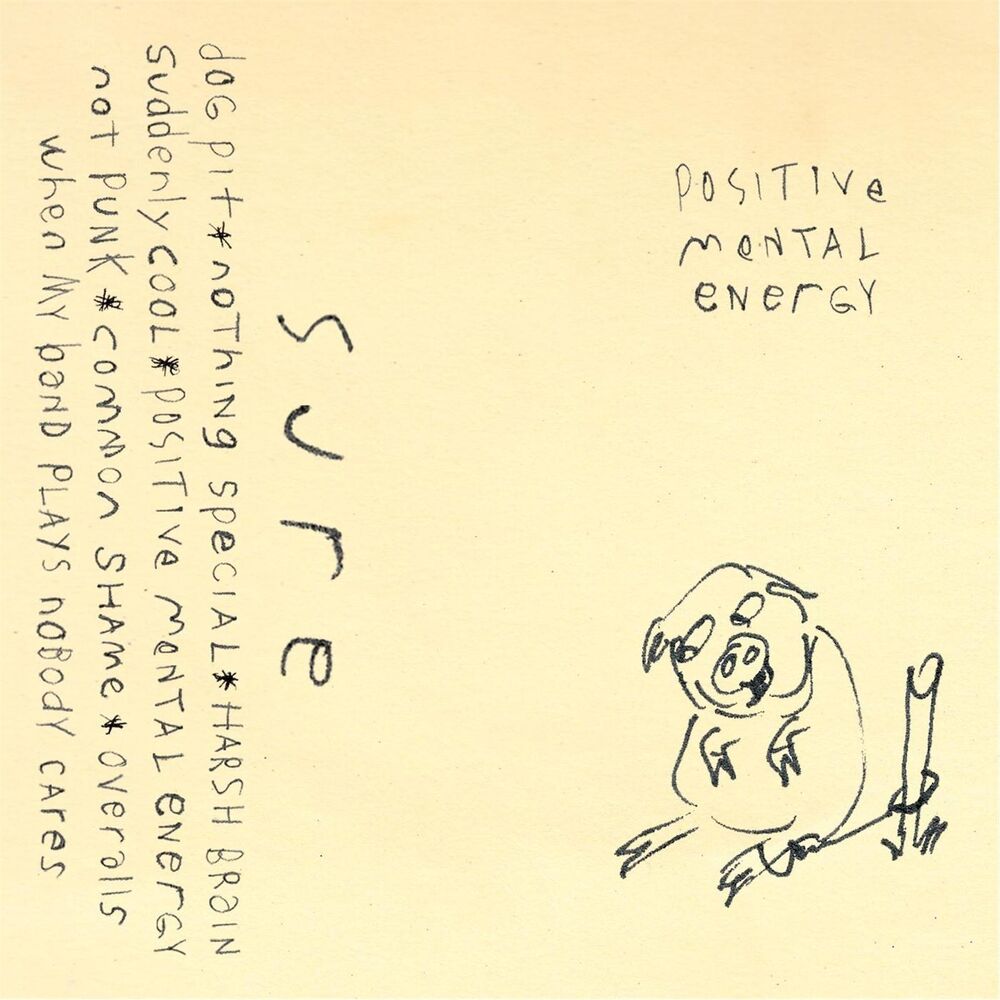 POSITIVe
meNTAL
eNerGY
sure
dOG pit * noThiNg speciAL * HARSH BRaiN
suddenly cOOL * pOSITIVe meNTAL eNerGY
not puNK * common SHAme * overalls
when MY baND PLAYS noBody cares